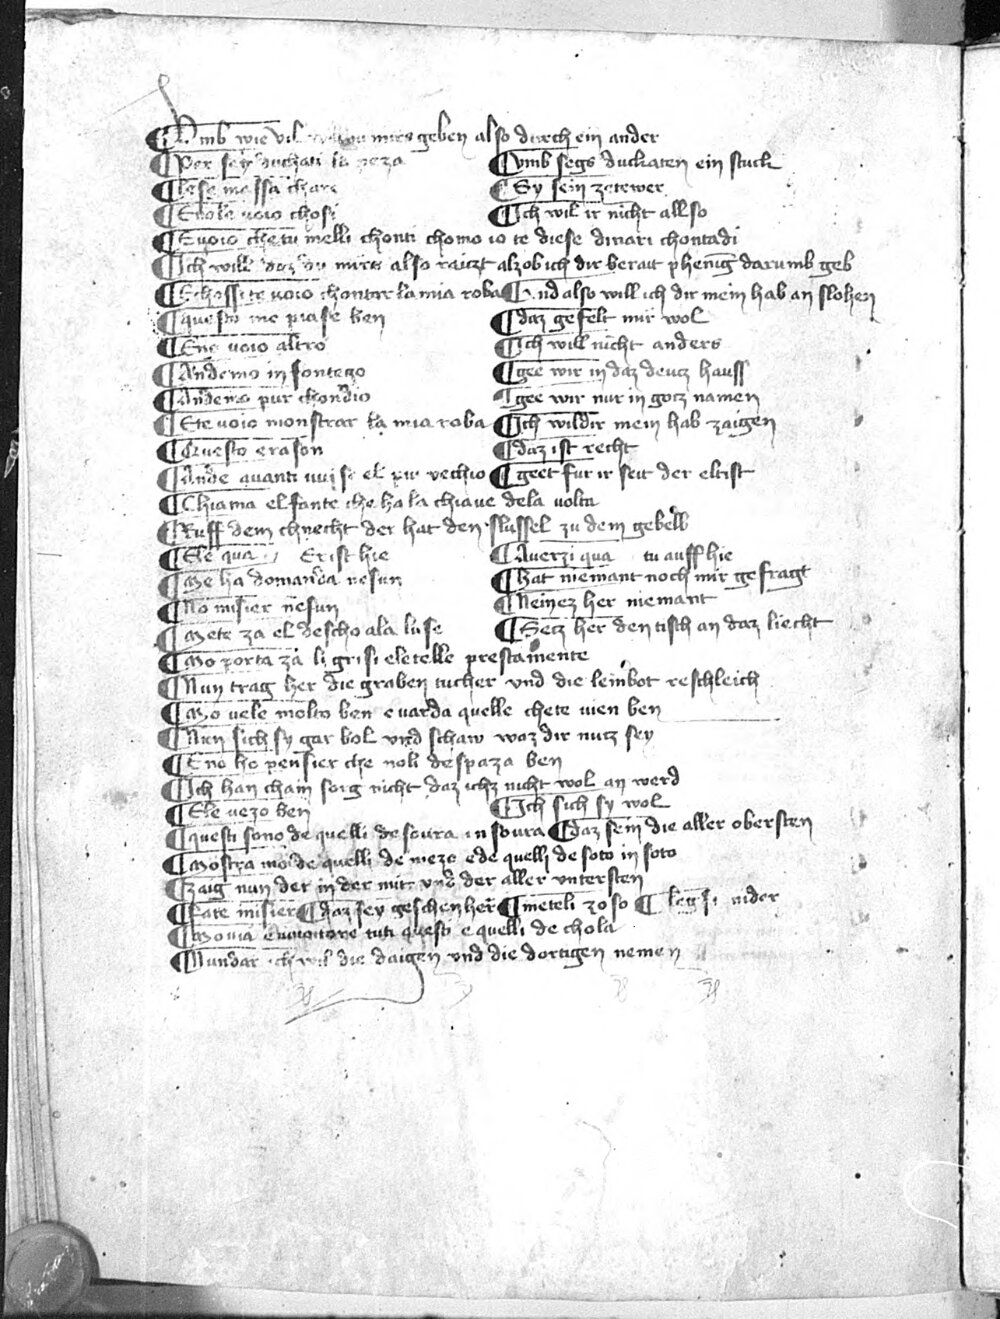 ¶ Vmb wie vil mirs geben also durch ein ander
¶ Per sey duchati la peza ¶ Vmb segs duckaten ein stuck
¶ Le se massa chare ¶ Sy sein zetewer
¶ E nole voio chosi ¶ Ich wil ir nicht allso
¶ E voio che tu melli chonti chomo io te diese dinari chontadi
¶ Ich will daz du mirs also raiczt alz ob ich dir berait phenig darumb geb
¶ E chossi te voio chontar la mia roba ¶ Vnd also will ich dir mein hab an slohen
¶ questo me piase ben ¶ daz gefelt mir wol
¶ E ne voio altro ¶ Ich will nicht anders
¶ Andemo in fontego ¶ gee wir in daz deucz hauss
¶ Andemo pur chon dio ¶ gee wir nur in gotz namen
¶ E te voio monstrar la mia roba ¶ Ich wil dir mein hab zaigen
¶ Questo e rason ¶ daz ist recht
¶ Ande auanti vui se el piu vechio ¶ geet fur ir seit der eltist
¶ Chiama el fante che ha la chiaue dela volta
¶ Ruff dem chnecht der hat den slussel zu dem gebelb
¶ Ele qua Er ist hie ¶ Auerzi qua tu auff hie
¶ Me ha domanda nesun ¶ hat niemant noch mir gefragt
¶ No misier nesun ¶ Neinez her niemant
¶ Mete za el descho ala luse ¶ Secz her den tisch an daz liecht
¶ Mo porta za li grisi e le telle prestamente
¶ Nun trag her die graben tucher vnd die leinbot reschleich
¶ Mo vele molto ben e varda quelle che te uien ben
¶ Nun sich sy gar bol vnd schaw waz dir nucz sey
¶ E no ho pensier che noli despaza ben
¶ Ich han cham sorg nicht daz ichz nicht wol an werd
¶ E le vezo ben ¶ Ich sich sy wol
¶ questi sono de quelli de soura in soura ¶ daz sein die aller obersten
¶ Mostra mo de quelli de mezo e de quelli de soto in soto
¶ zaig nun der in der mitt vnd der aller vntersten
¶ Fate misier ¶ daz sey geschen her ¶ meteli zoso ¶ leg si nider
¶ Mo via e tuti questi e quelli de chola
¶ Nun dar ich wil die daigen vnd die dortigen nemen